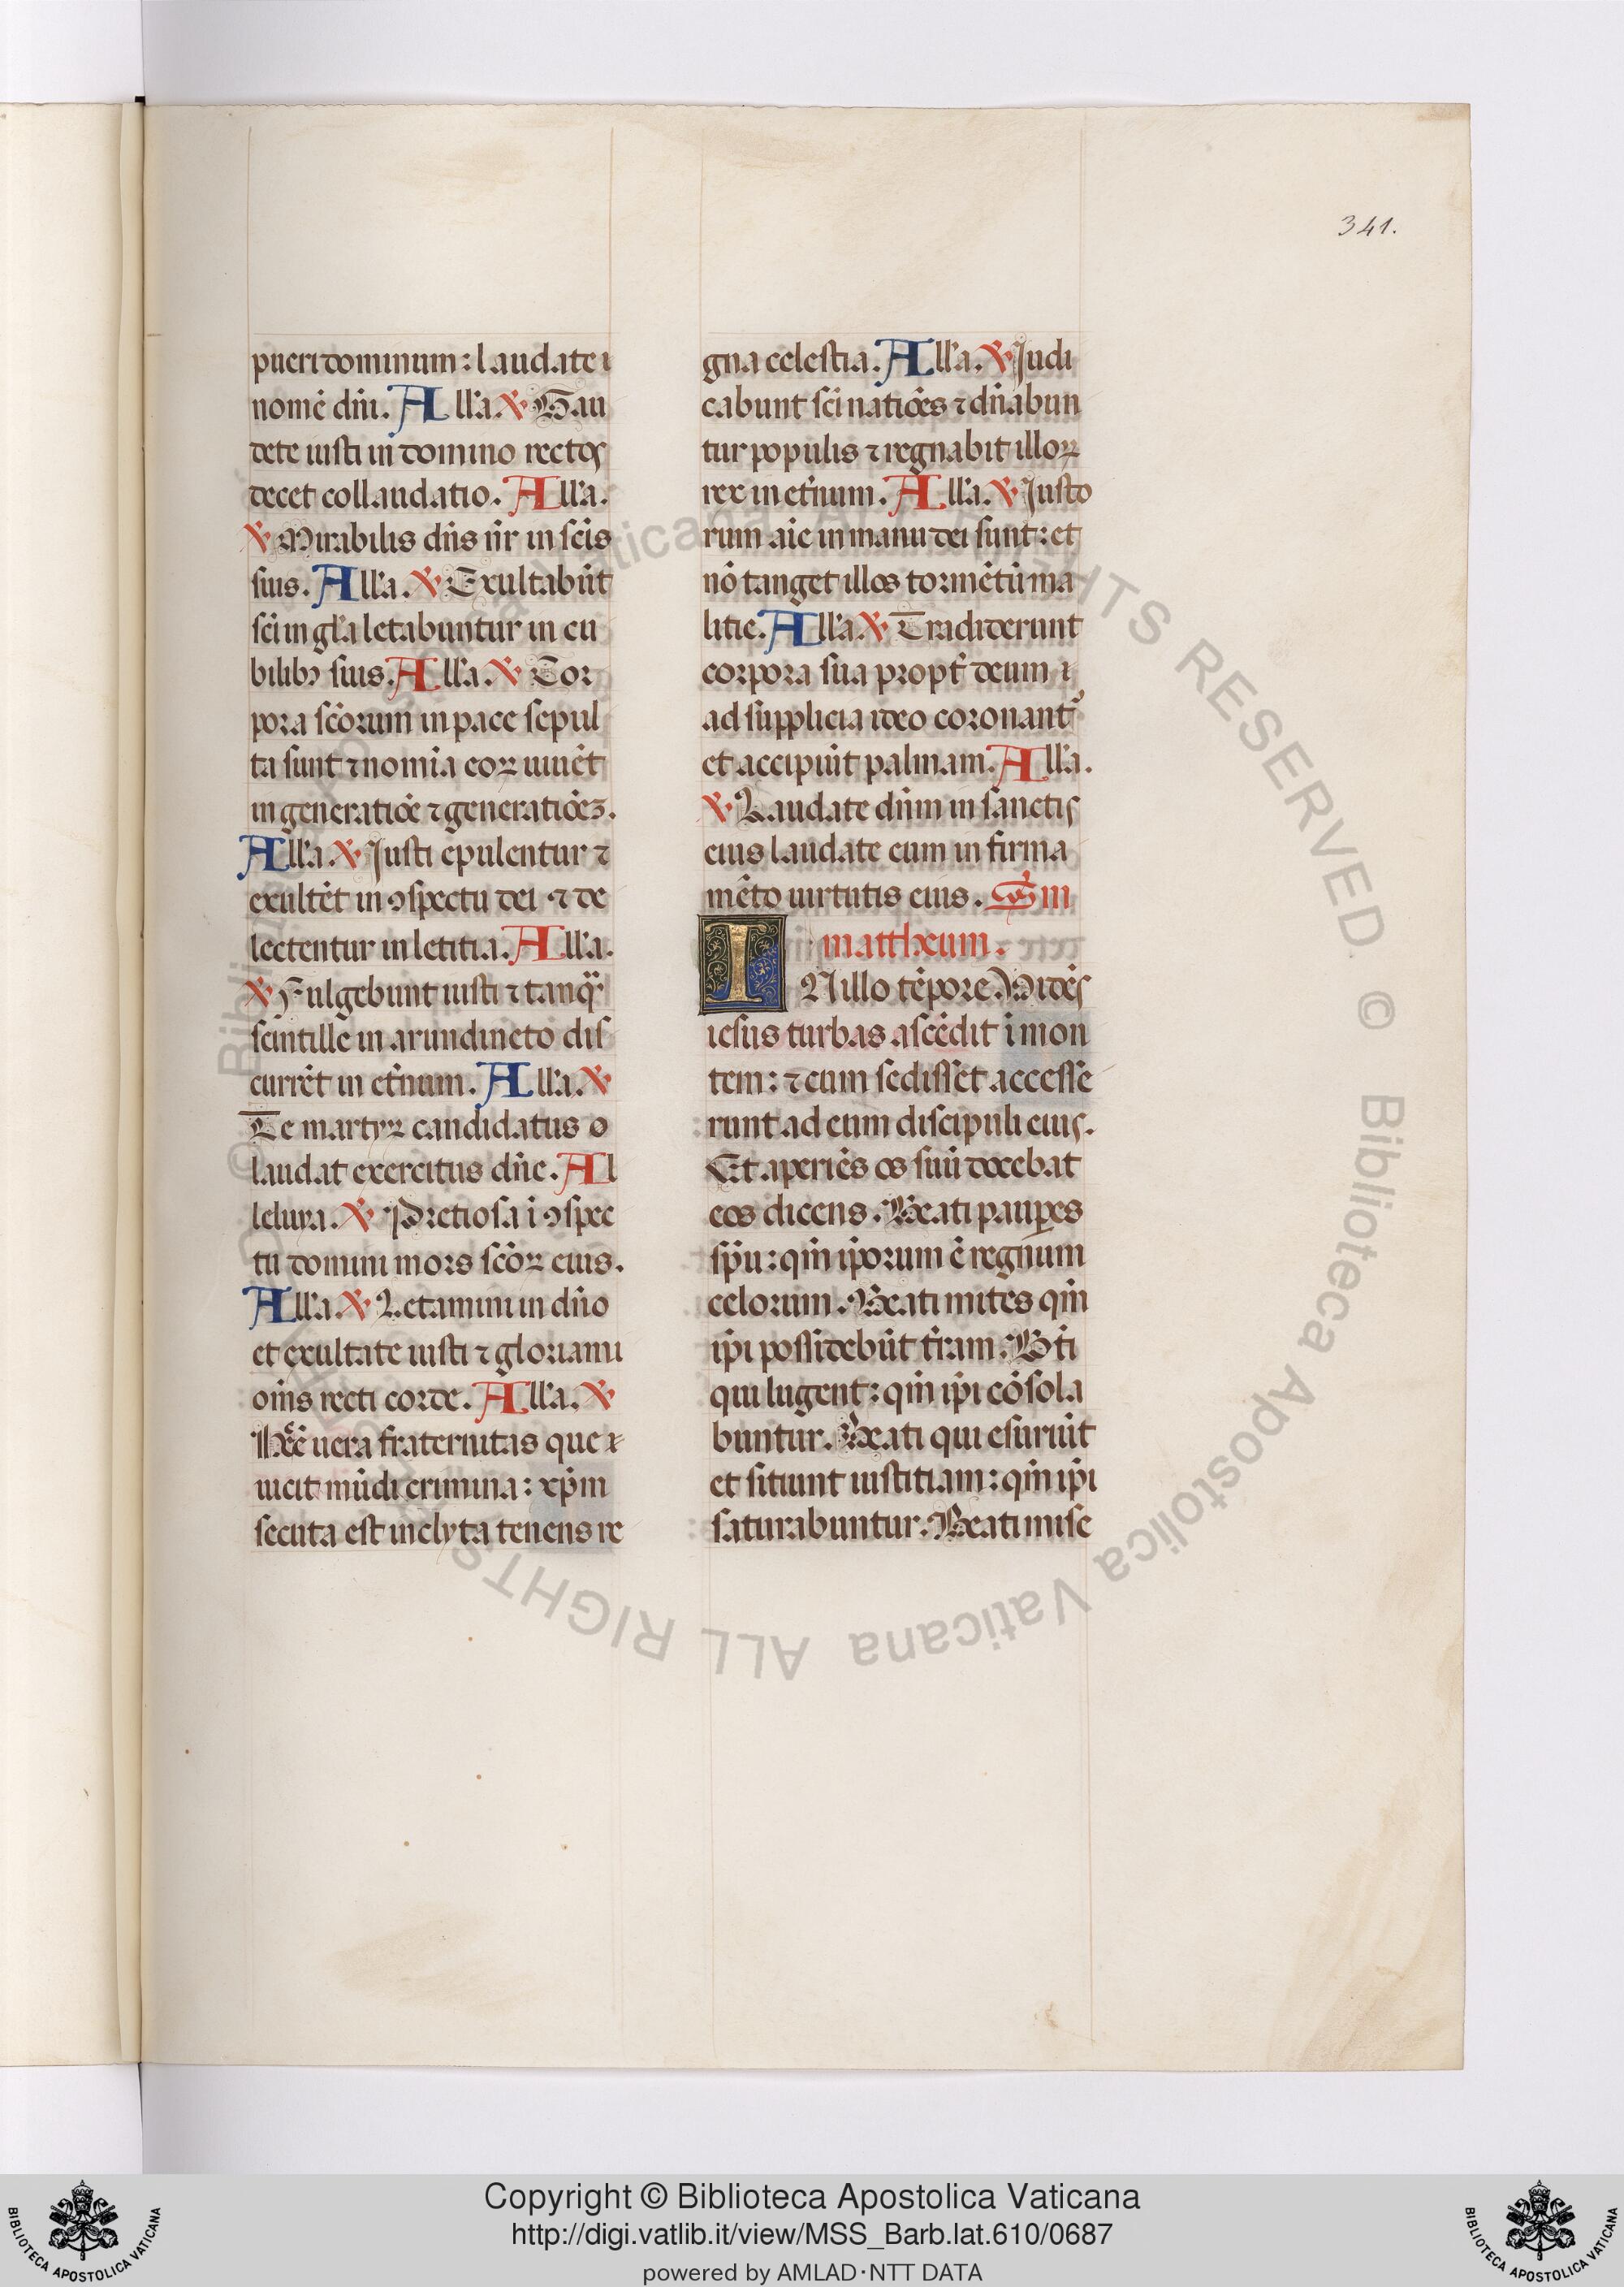 341.
pueri dominum: laudate i
nomē dñi. All'a. ℣ Gau
dete iusti in domino rectos
decet collaudatio. All'a.
℣ Mirabilis dñs nr̄ in scīs
suis. All'a. ℣ Exultabūt
scī in gl'a letabuntur in cu
bilibꝫ suis. All'a. ℣ Cor
pora scōrum in pace sepul
ta sunt ⁊ nomīa eoꝝ uiuēt
in generatiōe ⁊ generatiōeꝫ.
All'a. ℣ Justi epulentur ⁊
exultēt in ꝯspectu dei ⁊ de
lectentur in letitia. All'a.
℣ Fulgebunt iusti ⁊ tanqᷓ
scintille in arundineto dis
currēt in et̄num. All'a. ℣
Te martyꝝ candidatus o
laudat exercitus dñe. Al
leluya. ℣ Pretiosa i ꝯspec
tu domini mors scōꝝ eius.
All'a ℣ Letamini in dño
et exultate iusti ⁊ gloriami
oīns recti corde. All'a. ℣
Hec̄ uera fraternitas que
uicit mūdi crimina: xp̄m
secuta est inclyta tenens re
gna celestia. All'a. ℣ Judi
cabunt scī natiōes ⁊ dñabun
tur populis ⁊ regnabit illoꝝ
rex in et̄num. All'a. ℣ Justo
rum aīe in manu dei sunt: et
nō tanget illos tormētū ma
litie. All'a. ℣ Tradiderunt
corpora sua propt̄ deum
ad supplicia ideo coronant᷑
et accipiūt palmam. All'a.
℣ Laudate dñm in sanctis
eius laudate eum in firma
mēto uirtutis eius. Sm̄
mattheum.
IN illo tēpore Vidēs
iesus turbas ascēdit i mon
tem: ⁊ cum sedisset accesse
runt ad eum discipuli eius.
Et aperiēs os suū docebat
eos dicens. Beati pauꝑes
spū: qm̄ ip̄orum ē regnum
celorum. Beati mites qm̄
ip̄i possidebūt t̄ram. Bt̄i
qui lugent: qm̄ ip̄i cōsola
buntur. Beati qui esuriūt
et sitiunt iustitiam: qm̄ ip̄i
saturabuntur. Beati mise
Copyright © Biblioteca Apostolica Vaticana
http://digi.vatlib.it/view/MSS_Barb.lat.610/0687
powered by AMLAD·NTT DATA
BIBLIOTECA APOSTOLICA VATICANA
BIBLIOTECA APOSTOLICA VATICANA
© Biblioteca Apostolica Vaticana ALL RIGHTS RESERVED © Biblioteca Apostolica Vaticana ALL RIGHTS